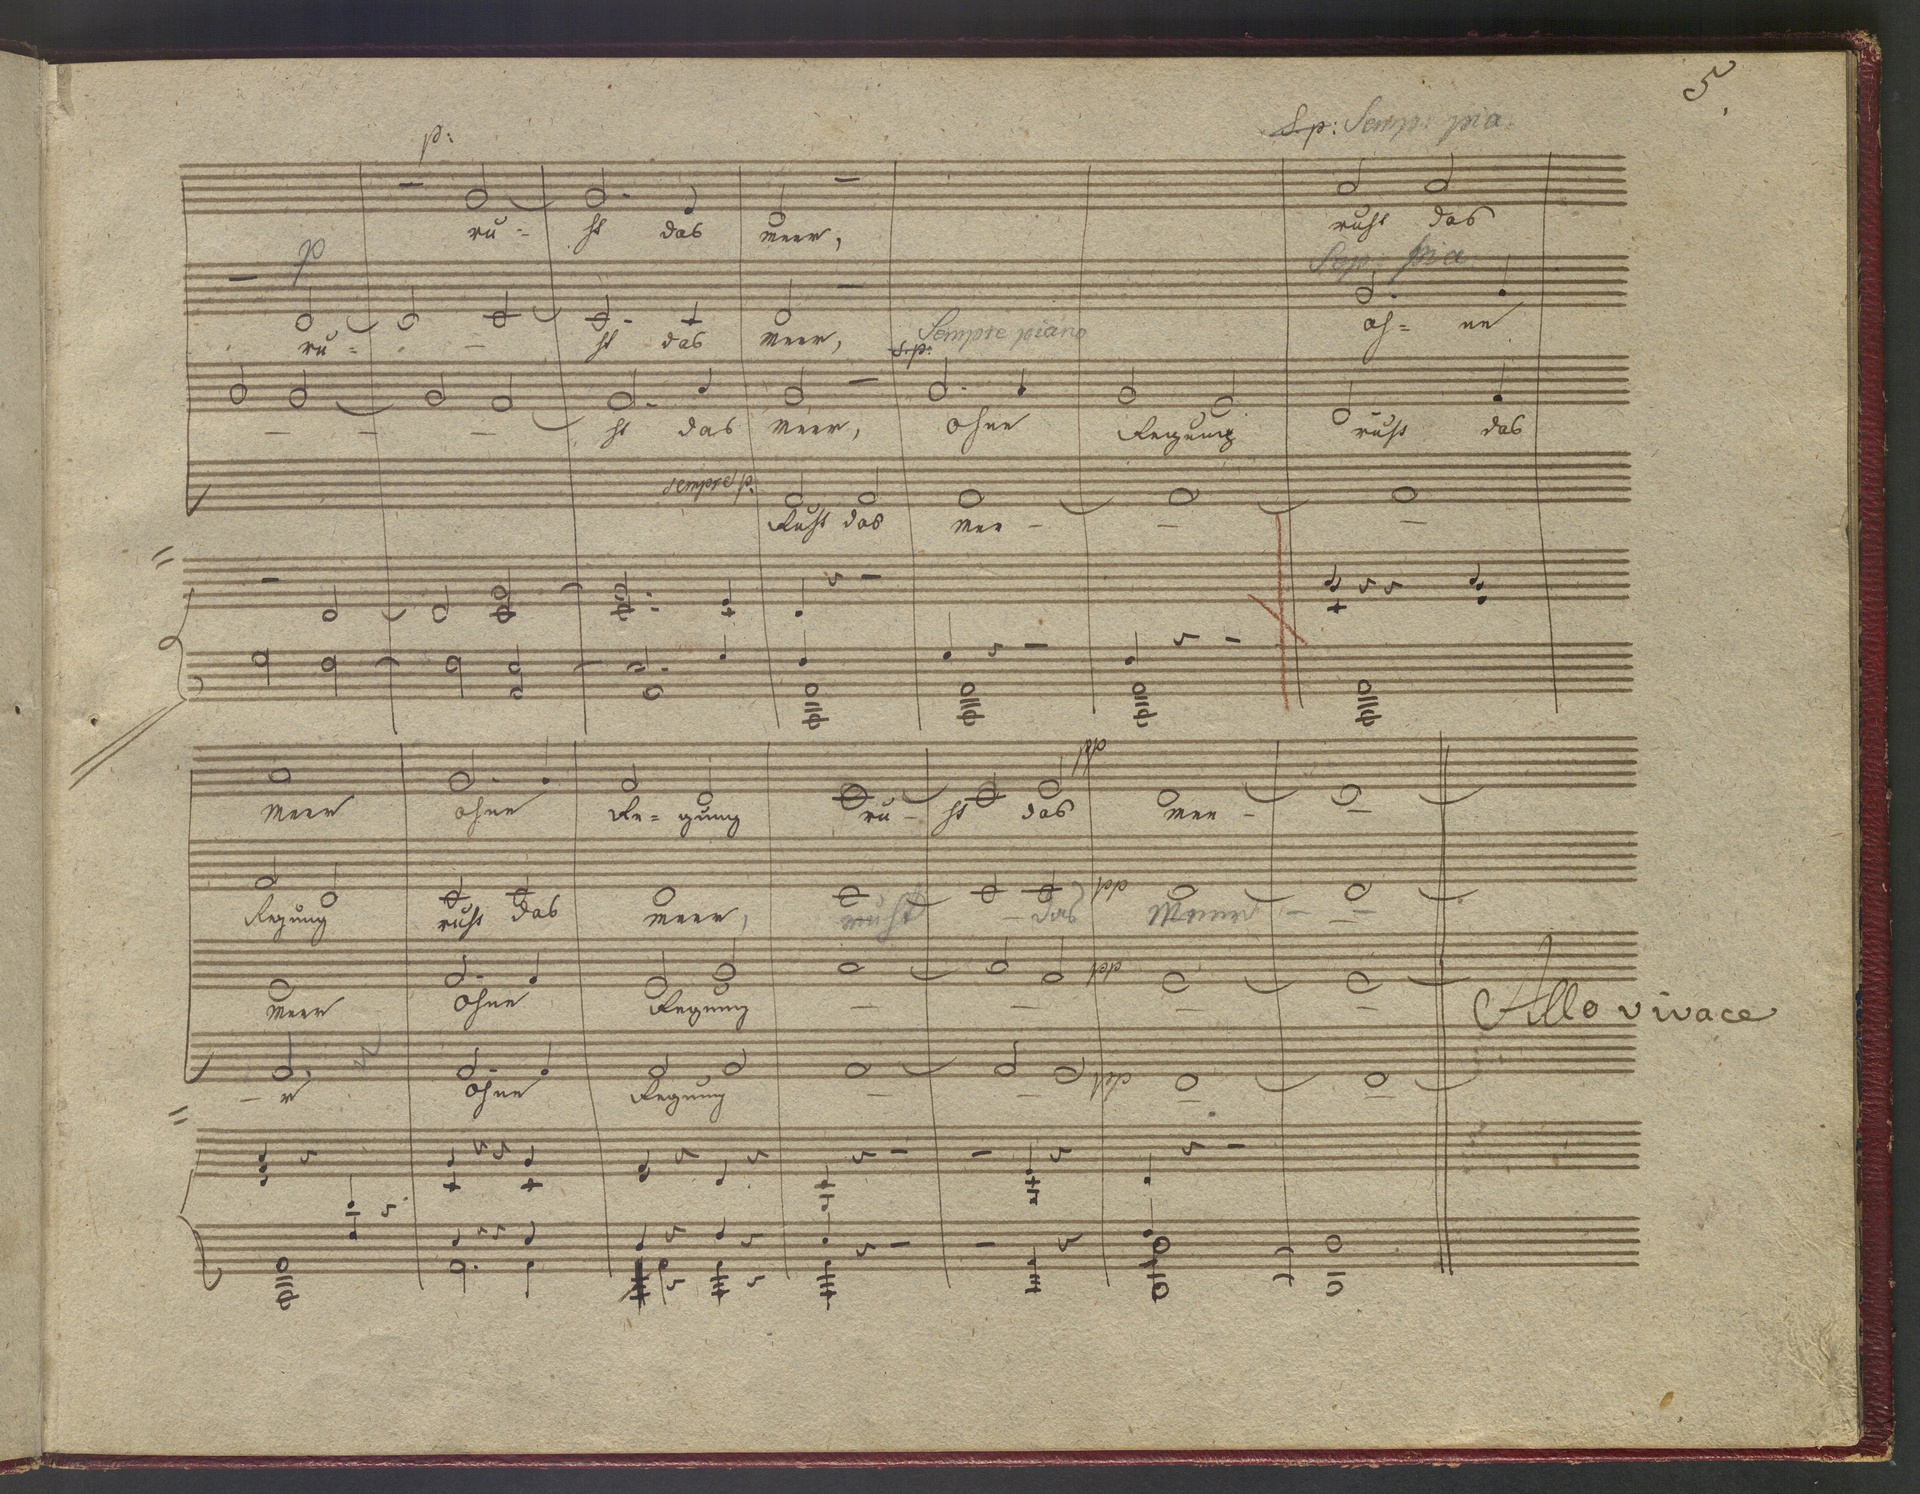 5.
S. p: Semp: pia.
p:
ru - ht das Meer, ruht das
p Sep: pia
ru = - ht das Meer, oh = ne
s. p: Sempre piano
- - - ht das Meer, ohne Regung ruht das
sempre p.
Ruht das Mee - - -
pp
Meer ohne Re = gung ru - ht das Mee - -
pp
Regung ruht das Meer, ruht - das Meer - -
pp
Meer ohne Regung - - - -
Allo vivace
pp
- r ohne Regung - - - -